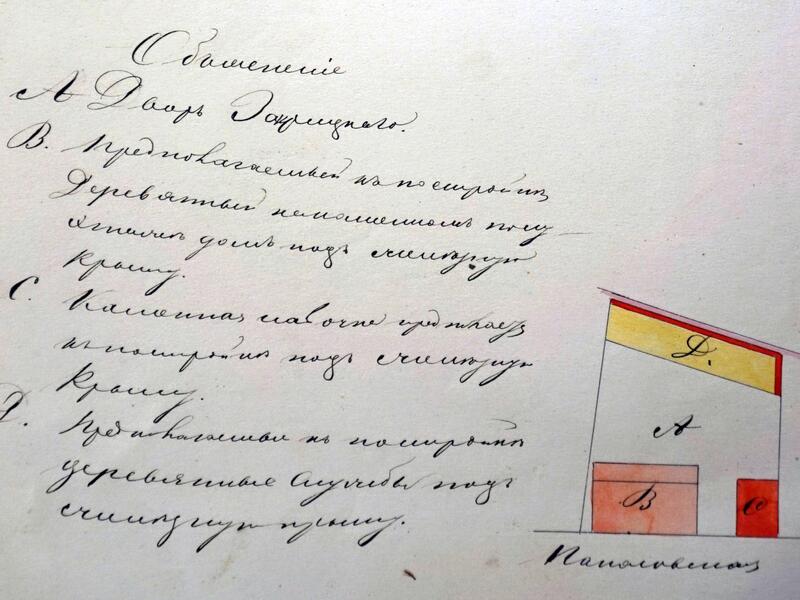 Объясненіе
А Дворъ Закрицкаго.
В. Предпологаемый къ постройкѣ
Деревянный на каменномъ полу-
этажѣ домъ подъ желѣзную
крышу.
С. Каменная лавочка
къ постройкѣ подъ желѣзную
крышу.
D. Предпологаемыя къ постройкѣ
деревянные Службы подъ
желѣзную крышу.
D.
А
В
С